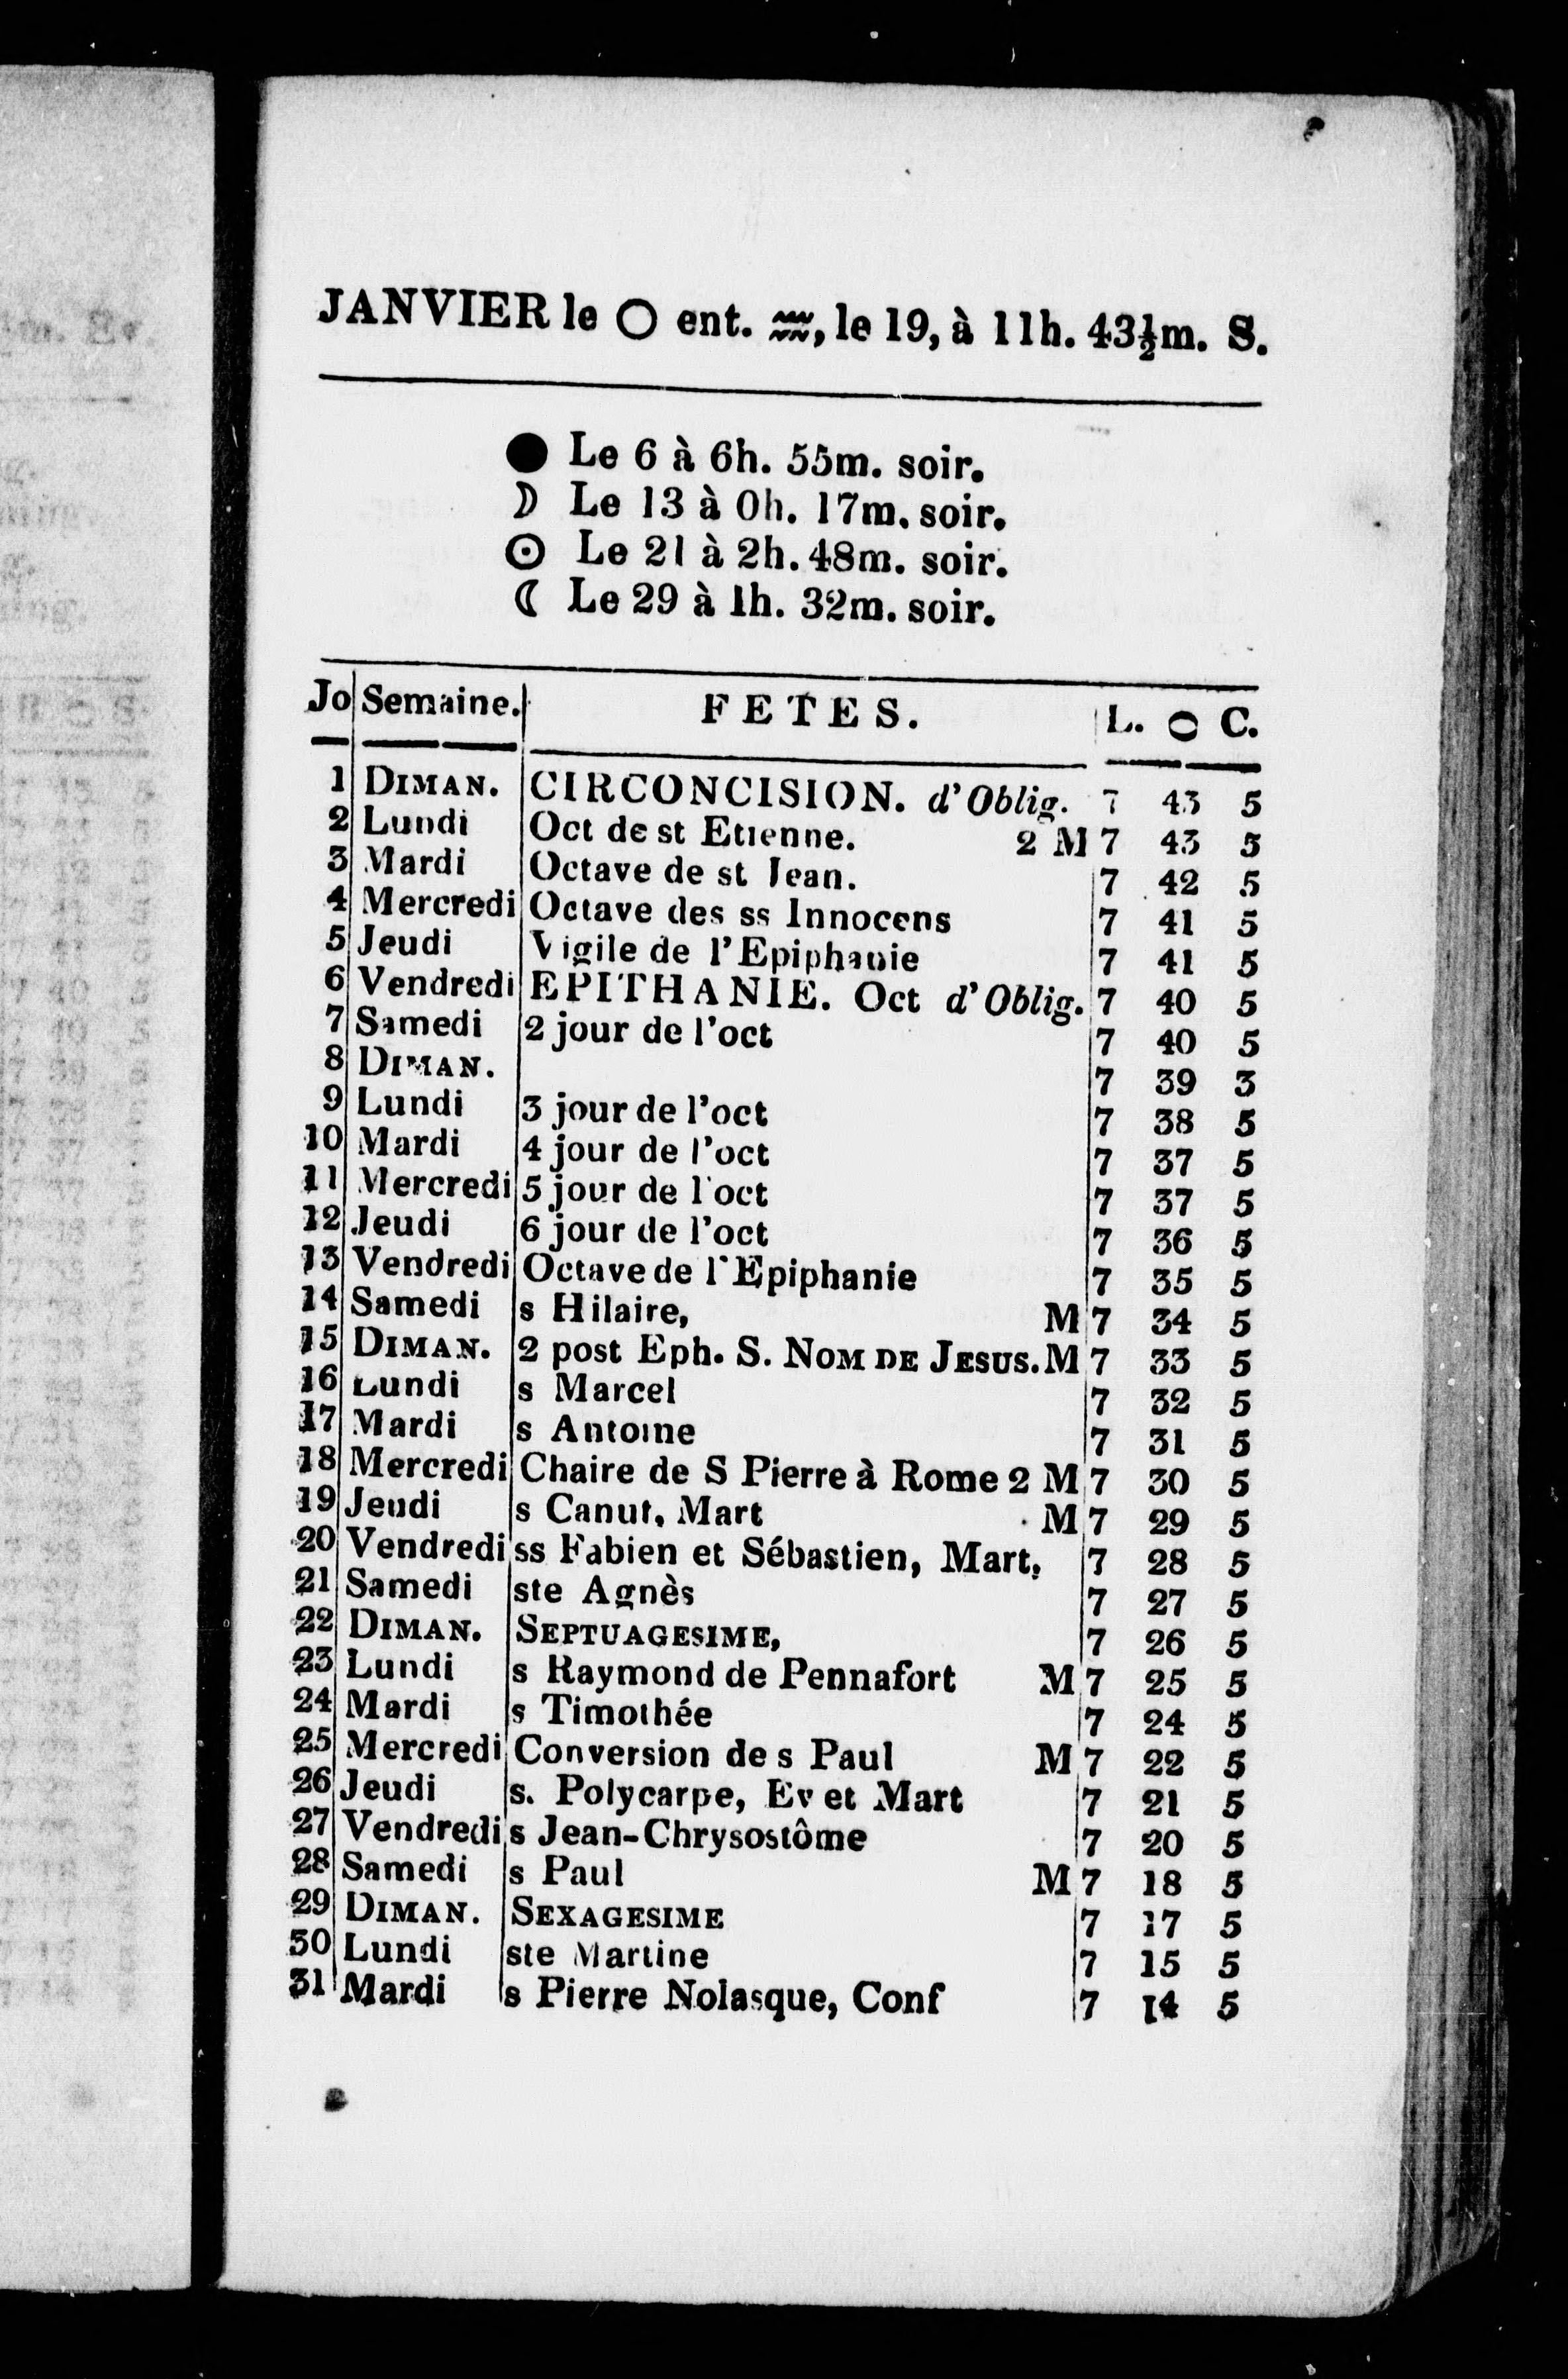 JANVIER le ○ ent. ♒, le 19, à 11h. 43½m. S.
● Le 6 à 6h. 55m. soir.
☽ Le 13 à 0h. 17m. soir.
☉ Le 21 à 2h. 48m. soir.
☾ Le 29 à 1h. 32m. soir.
Jo Semaine. FETES. L. ○ C.
1 DIMAN. CIRCONCISION. d'Oblig. 7 43 5
2 Lundi Oct de st Etienne. 2 M 7 43 5
3 Mardi Octave de st Jean. 7 42 5
4 Mercredi Octave des ss Innocens 7 41 5
5 Jeudi Vigile de l'Epiphanie 7 41 5
6 Vendredi EPITHANIE. Oct d'Oblig. 7 40 5
7 Samedi 2 jour de l'oct 7 40 5
8 DIMAN. 7 39 3
9 Lundi 3 jour de l'oct 7 38 5
10 Mardi 4 jour de l'oct 7 37 5
11 Mercredi 5 jour de l'oct 7 37 5
12 Jeudi 6 jour de l'oct 7 36 5
13 Vendredi Octave de l'Epiphanie 7 35 5
14 Samedi s Hilaire, M 7 34 5
15 DIMAN. 2 post Eph. S. NOM DE JESUS. M 7 33 5
16 Lundi s Marcel 7 32 5
17 Mardi s Antoine 7 31 5
18 Mercredi Chaire de S Pierre à Rome 2 M 7 30 5
19 Jeudi s Canut, Mart M 7 29 5
20 Vendredi ss Fabien et Sébastien, Mart. 7 28 5
21 Samedi ste Agnès 7 27 5
22 DIMAN. SEPTUAGESIME, 7 26 5
23 Lundi s Raymond de Pennafort M 7 25 5
24 Mardi s Timothée 7 24 5
25 Mercredi Conversion de s Paul M 7 22 5
26 Jeudi s. Polycarpe, Ev et Mart 7 21 5
27 Vendredi s Jean-Chrysostôme 7 20 5
28 Samedi s Paul M 7 18 5
29 DIMAN. SEXAGESIME 7 17 5
30 Lundi ste Martine 7 15 5
31 Mardi s Pierre Nolasque, Conf 7 14 5